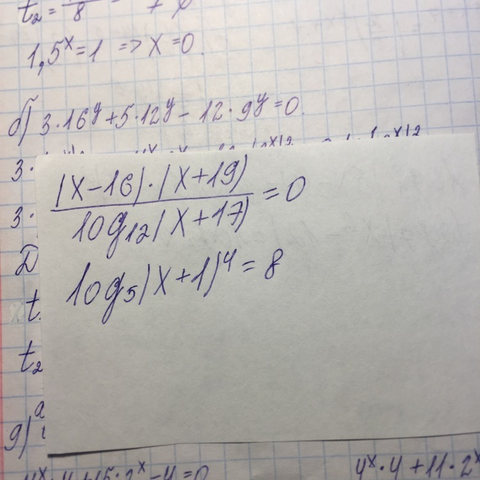 t₂ = /8
1,5ˣ=1 => x=0.
б) 3·16ʸ+5·12ʸ-12·9ʸ=0
3·
3·
(x-16)·(x+19)
log₁₂(x+17)
=0
log₅(x+1)⁴=8
t₂
g)
4ˣ·4+11·2ˣ